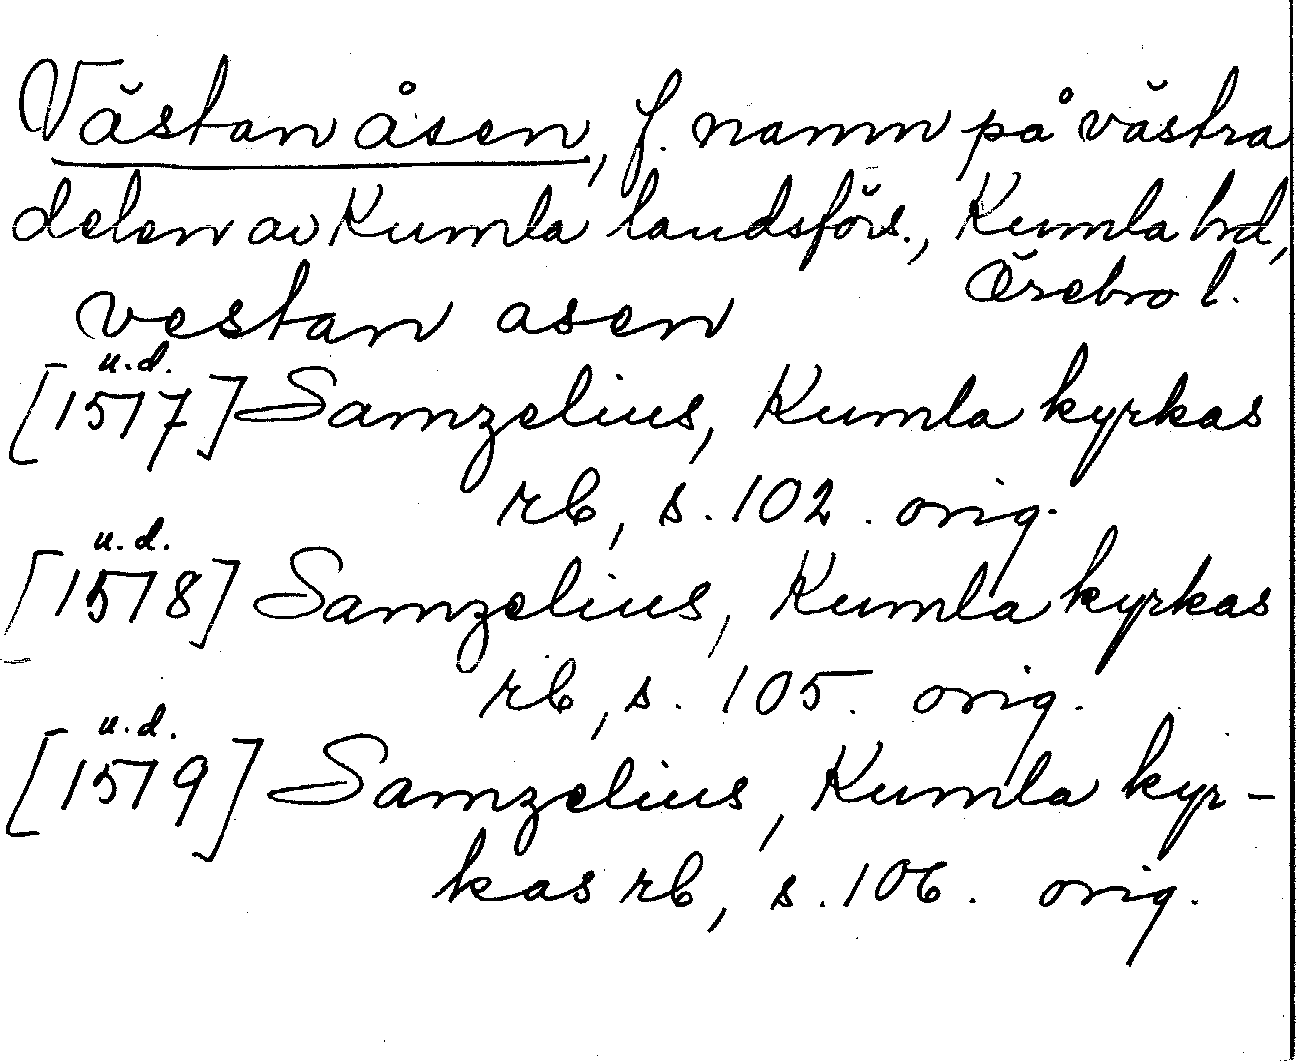 Västan åsen, f. namn på västra
delen av Kumla landsförs., Kumla hd,
Örebro l.
vestan asen
u.d.
[1577] Samzelius, Kumla kyrkas
rb, s. 102. orig.
u.d.
[1578] Samzelius, Kumla kyrkas
rb, s. 105. orig.
u.d.
[1579] Samzelius, Kumla kyr-
kas rb, s. 106. orig.